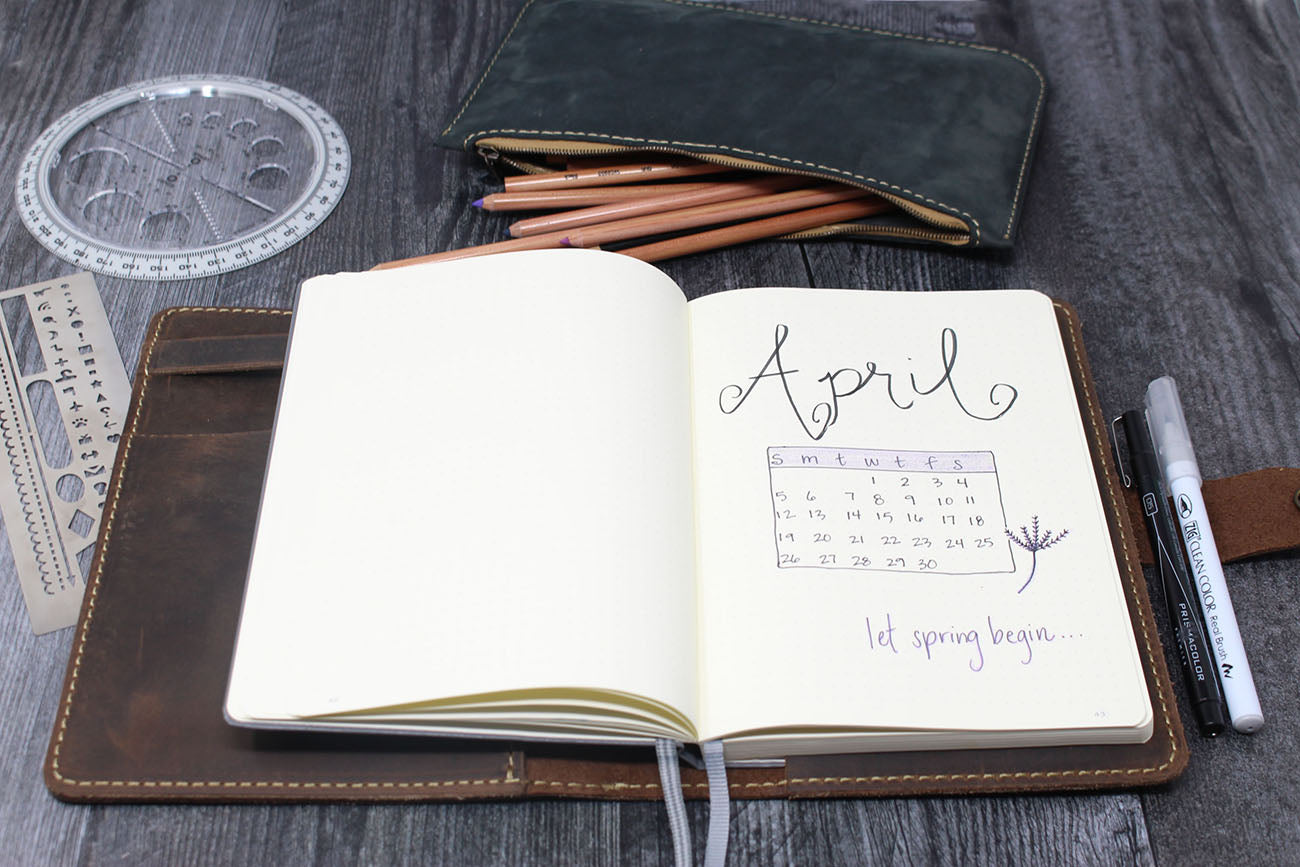 April
S m t w t f s
1 2 3 4
5 6 7 8 9 10 11
12 13 14 15 16 17 18
19 20 21 22 23 24 25
26 27 28 29 30
let spring begin...
05
PRISMACOLOR
ZIG CLEAN COLOR Real Brush